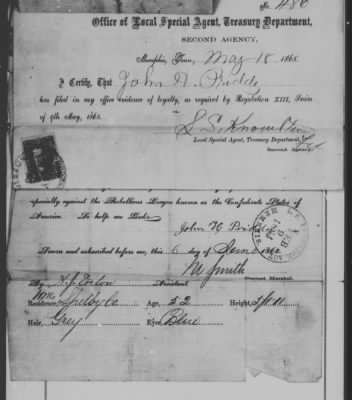 No. 486
Office of Local Special Agent, Treasury Department,
SECOND AGENCY,
Memphis, Tenn, May 18 1865
I Certify, That John N. Priddy
has filed in my office evidence of loyalty, as required by Regulation XIII, Series
of 9th May, 1865.
Local Special Agent, Treasury Department,
Second Agency.
specially against the Rebellious League known as the Confederate States of
America. So help me God.
John N. Priddy
Sworn and subscribed before me, this 6 day of June 1863
M Smith
Provost Marshal.
By Assistant
Residence, Shelby Co Age, 52 Height, 5 ft 11
Hair, Grey Eyes Blue